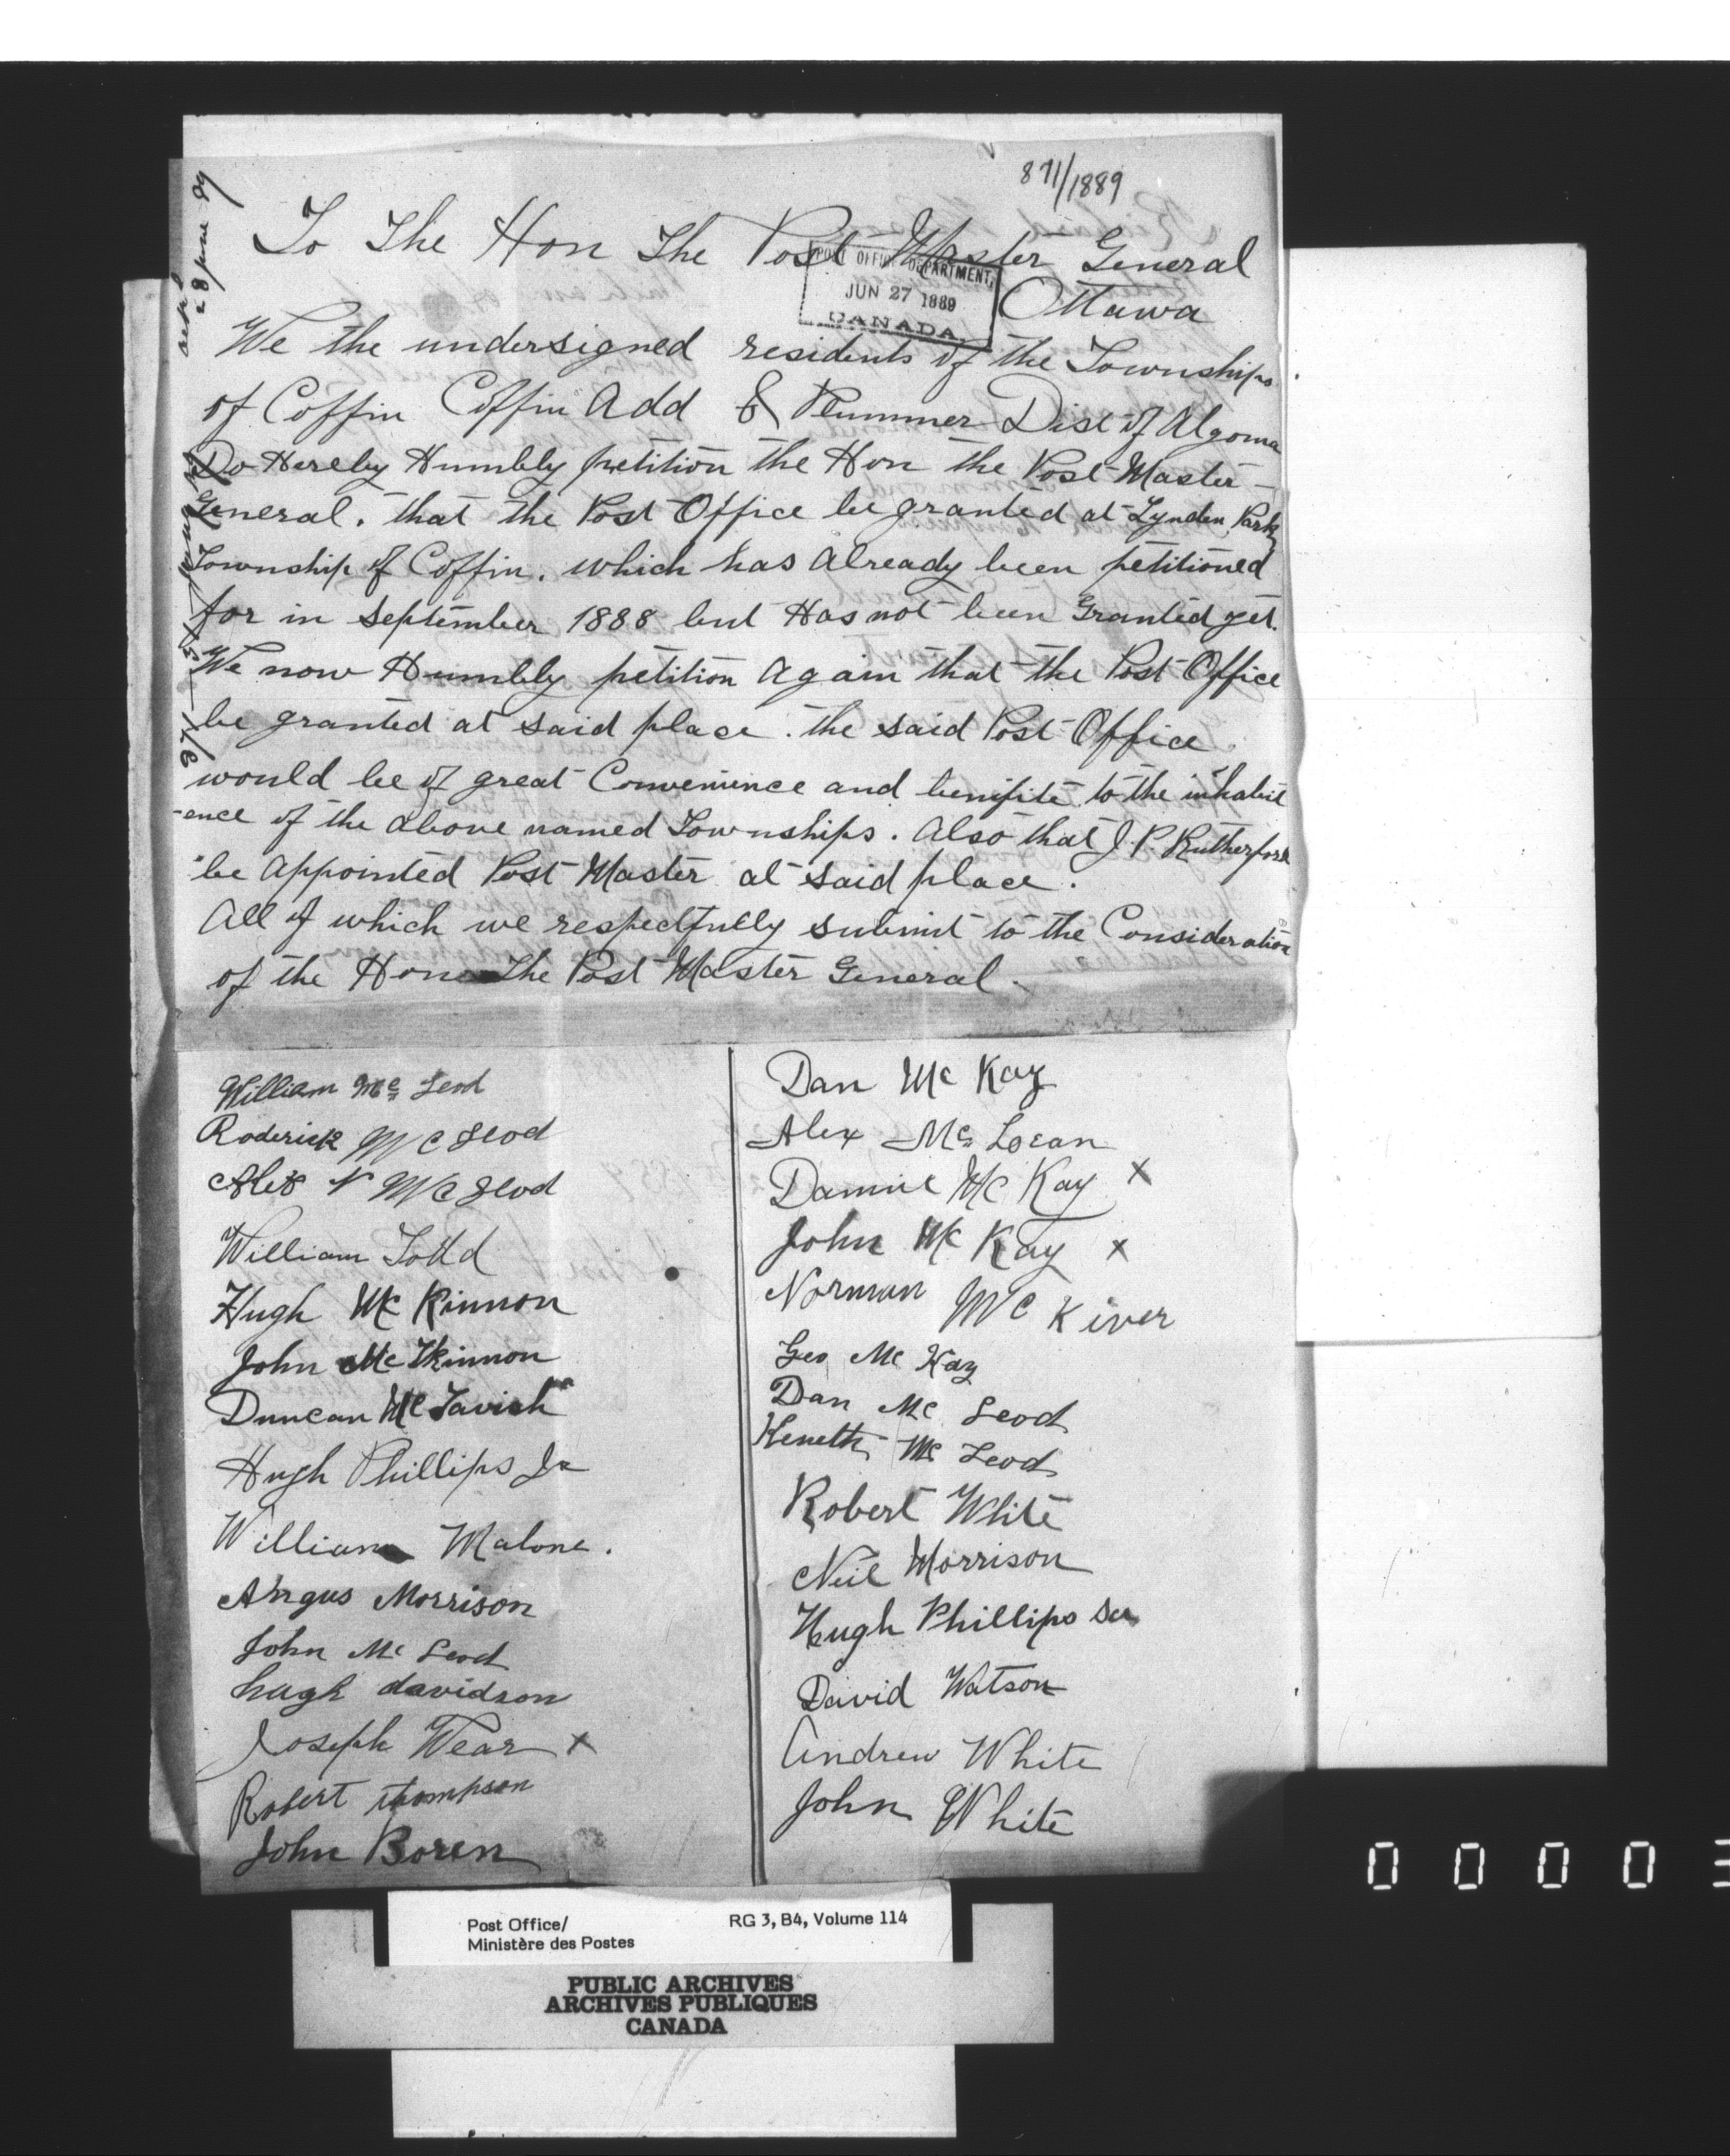 871/1889
ackd 28 June 89
To The Hon The Post Master General
POST OFFICE DEPARTMENT,
JUN 27 1889
CANADA.
Ottawa
We the undersigned residents of the Townships
of Coffin Coffin Add & Plummer Dist of Algoma
Do Hereby Humbly petition the Hon the Post Master
General. that the Post Office be granted at Lynden Park
Township of Coffin. which has Already been petitioned
for in September 1888 but Has not been Granted yet.
We now Humbly petition Again that the Post Office
be granted at said place. the said Post Office
would be of great Convenience and benifite to the inhabit
-ence of the above named Townships. Also that J. P. Rutherford
be Appointed Post Master at said place.
All of which we respectfully submit to the Consideration
of the Hon The Post Master General.
William Mc Leod
Roderick McLeod
Alex N McLeod
William Todd
Hugh McKinnon
John McKinnon
Duncan McTavish
Hugh Phillips Jr
William Malone.
Angus Morrison
John Mc Leod
hugh davidson
Joseph Wear x
Robert thompson
John Boren
Dan McKay
Alex Mc Lean
Daniel McKay x
John McKay x
Norman McKiver
Geo Mc Kay
Dan Mc Leod
Keneth Mc Leod
Robert White
Neil Morrison
Hugh Phillips Sen
David Watson
Andrew White
John White
Post Office/
Ministère des Postes
RG 3, B4, Volume 114
PUBLIC ARCHIVES
ARCHIVES PUBLIQUES
CANADA
0 0 0 0 3